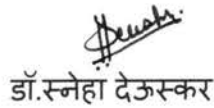 डॉ.स्नेहा देऊस्कर